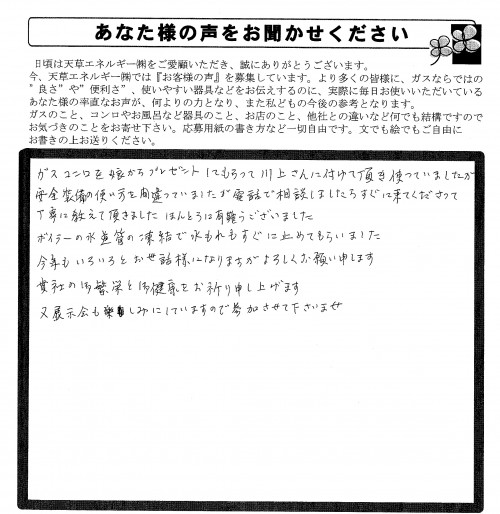 あなた様の声をお聞かせください
日頃は天草エネルギー㈱をご愛顧いただき、誠にありがとうございます。
今、天草エネルギー㈱では『お客様の声』を募集しています。より多くの皆様に、ガスならではの
”良さ”や”便利さ”、使いやすい器具などをお伝えするのに、実際に毎日お使いいただいている
あなた様の率直なお声が、何よりの力となり、また私どもの今後の参考となります。
ガスのこと、コンロやお風呂など器具のこと、お店のこと、他社との違いなど何でも結構ですので
お気づきのことをお寄せ下さい。応募用紙の書き方など一切自由です。文でも絵でもご自由に
お書きの上お送りください。
ガスコンロを嫁からプレゼントしてもらって川上さんに付けて頂き使っていましたが
安全装備の使い方を間違っていましたが電話で相談しましたらすぐに来てくださって
丁寧に教えて頂きました ほんとうに有難うございました
ボイラーの水道管の凍結で水もれもすぐに止めてもらいました
今年もいろいろとお世話様になりますがよろしくお願い申します
貴社の御繁栄と御健康をお祈り申し上げます
又展示会も楽しみにしていますので参加させて下さいませ